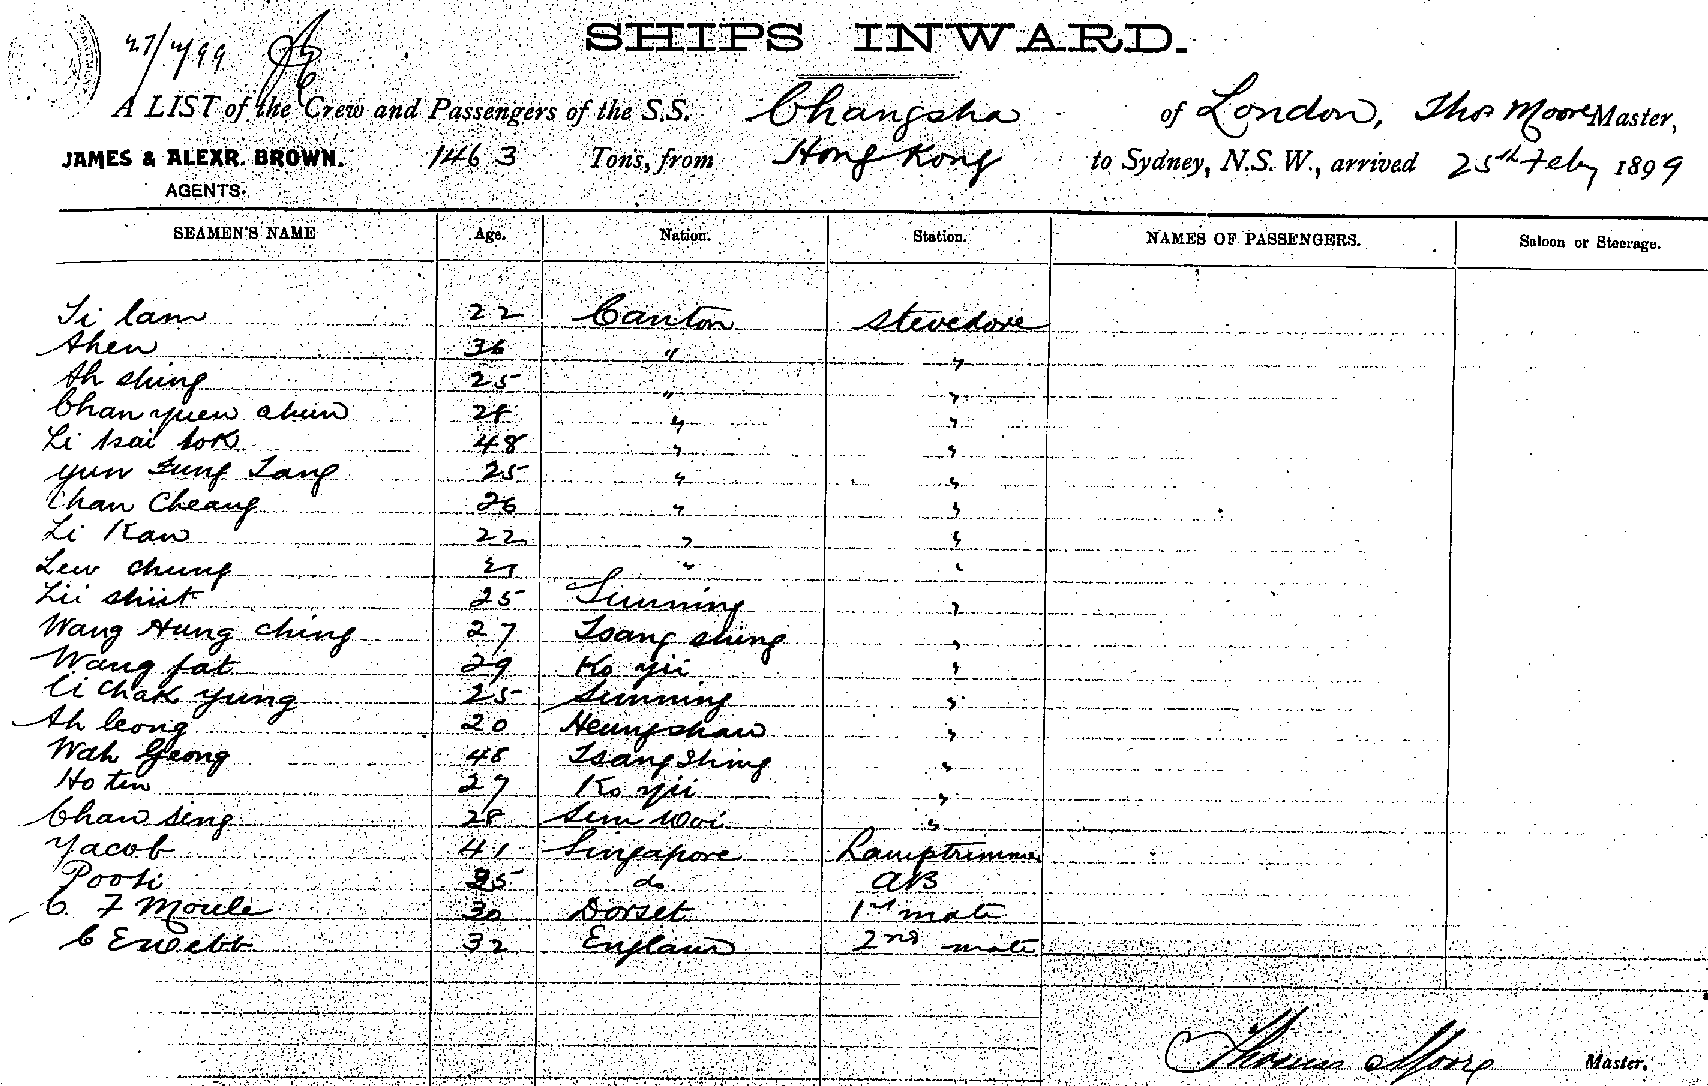 27/2/99
SHIPS INWARD.
A LIST of the Crew and Passengers of the S.S. Changsha of London, Thos Moore Master,
JAMES & ALEXR. BROWN. 1463 Tons, from Hong Kong to Sydney, N.S.W., arrived 25th Feby 1899
AGENTS.
SEAMEN'S NAME Age. Nation. Station. NAMES OF PASSENGERS. Saloon or Steerage.
Li lam 22 Canton Stevedore
Ahen 36 " "
Ah shing 25 " "
Chan yuen chun 28 " "
Li tsai tok 48 " "
yun Fung Tang 25 " "
Chan Cheang 26 " "
Li Kan 22 " "
Lew chung " "
Lii shut 25 Sunning "
Wang Hung ching 27 Tsang shing "
Wang fat 29 Ko yii "
Li Chak yung 25 Sunning "
Ah leong 20 Heungshan "
Wah Geong 48 Tsang Shing "
Ho tin 27 Ko yii "
Chan sing 28 Sun Woi "
Yacob 41 Singapore Lamptrimmer
Pooti 25 do AB
C. F Moule 30 Dorset 1st mate
C E Webb 32 England 2nd mate
Thomas Moore Master.